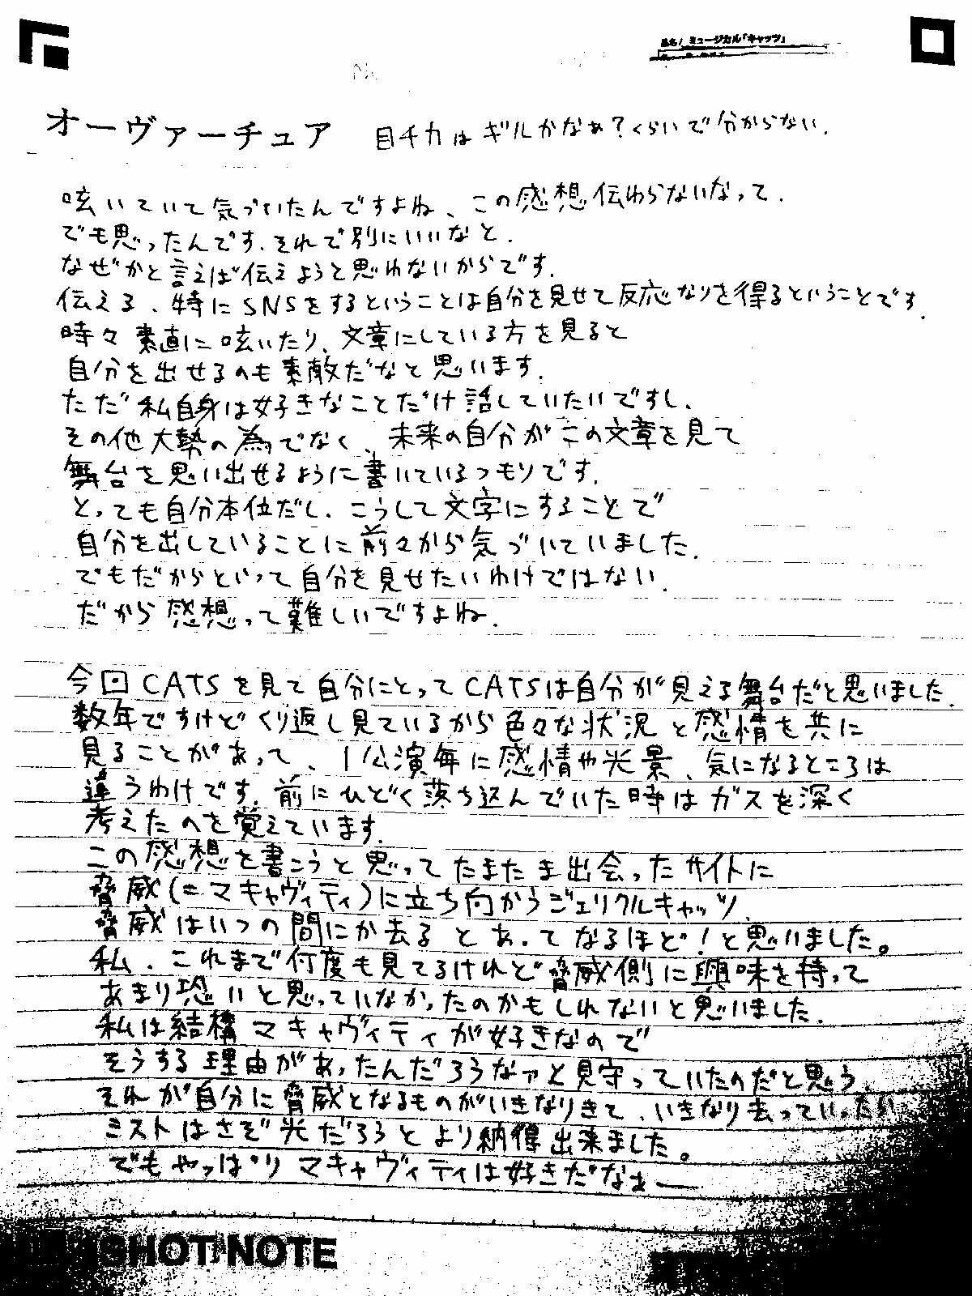 品名/ ミュージカル「キャッツ」
オーヴァーチュア 目チカはギルかなぁ?くらいで分からない.
呟いていて気づいたんですよね、この感想伝わらないなって.
でも思ったんです.それで別にいいなと.
なぜかと言えば伝えようと思わないからです.
伝える、特にSNSをするということは自分を見せて反応なりを得るということです.
時々素直に呟いたり、文章にしている方を見ると
自分を出せるのも素敵だなと思います.
ただ私自身は好きなことだけ話していたいですし、
その他大勢の為でなく、未来の自分がこの文章を見て
舞台を思い出せるように書いているつもりです.
とっても自分本位だし、こうして文字にすることで
自分を出していることに前々から気づいていました.
でもだからといって自分を見せたいわけではない.
だから感想って難しいですよね.
今回CATSを見て自分にとってCATSは自分が見える舞台だと思いました.
数年ですけどくり返し見ているから色々な状況と感情を共に
見ることがあって、1公演毎に感情や光景、気になるところは
違うわけです.前にひどく落ち込んでいた時はガスを深く
考えたのを覚えています.
この感想を書こうと思ってたまたま出会ったサイトに
脅威(=マキャヴィティ)に立ち向かうジェリクルキャッツ.
脅威はいつの間にか去る とあってなるほど!と思いました。
私、これまで何度も見てるけれど脅威側に興味を持って
あまり恐いと思っていなかったのかもしれないと思いました.
私は結構マキャヴィティが好きなので
そうする理由があったんだろうなァと見守っていたのだと思う.
それが自分に脅威となるものがいきなりきて、いきなり去っていったから
ミストはさぞ光だろうとより納得出来ました。
でもやっぱりマキャヴィティは好きだなぁー
SHOT NOTE